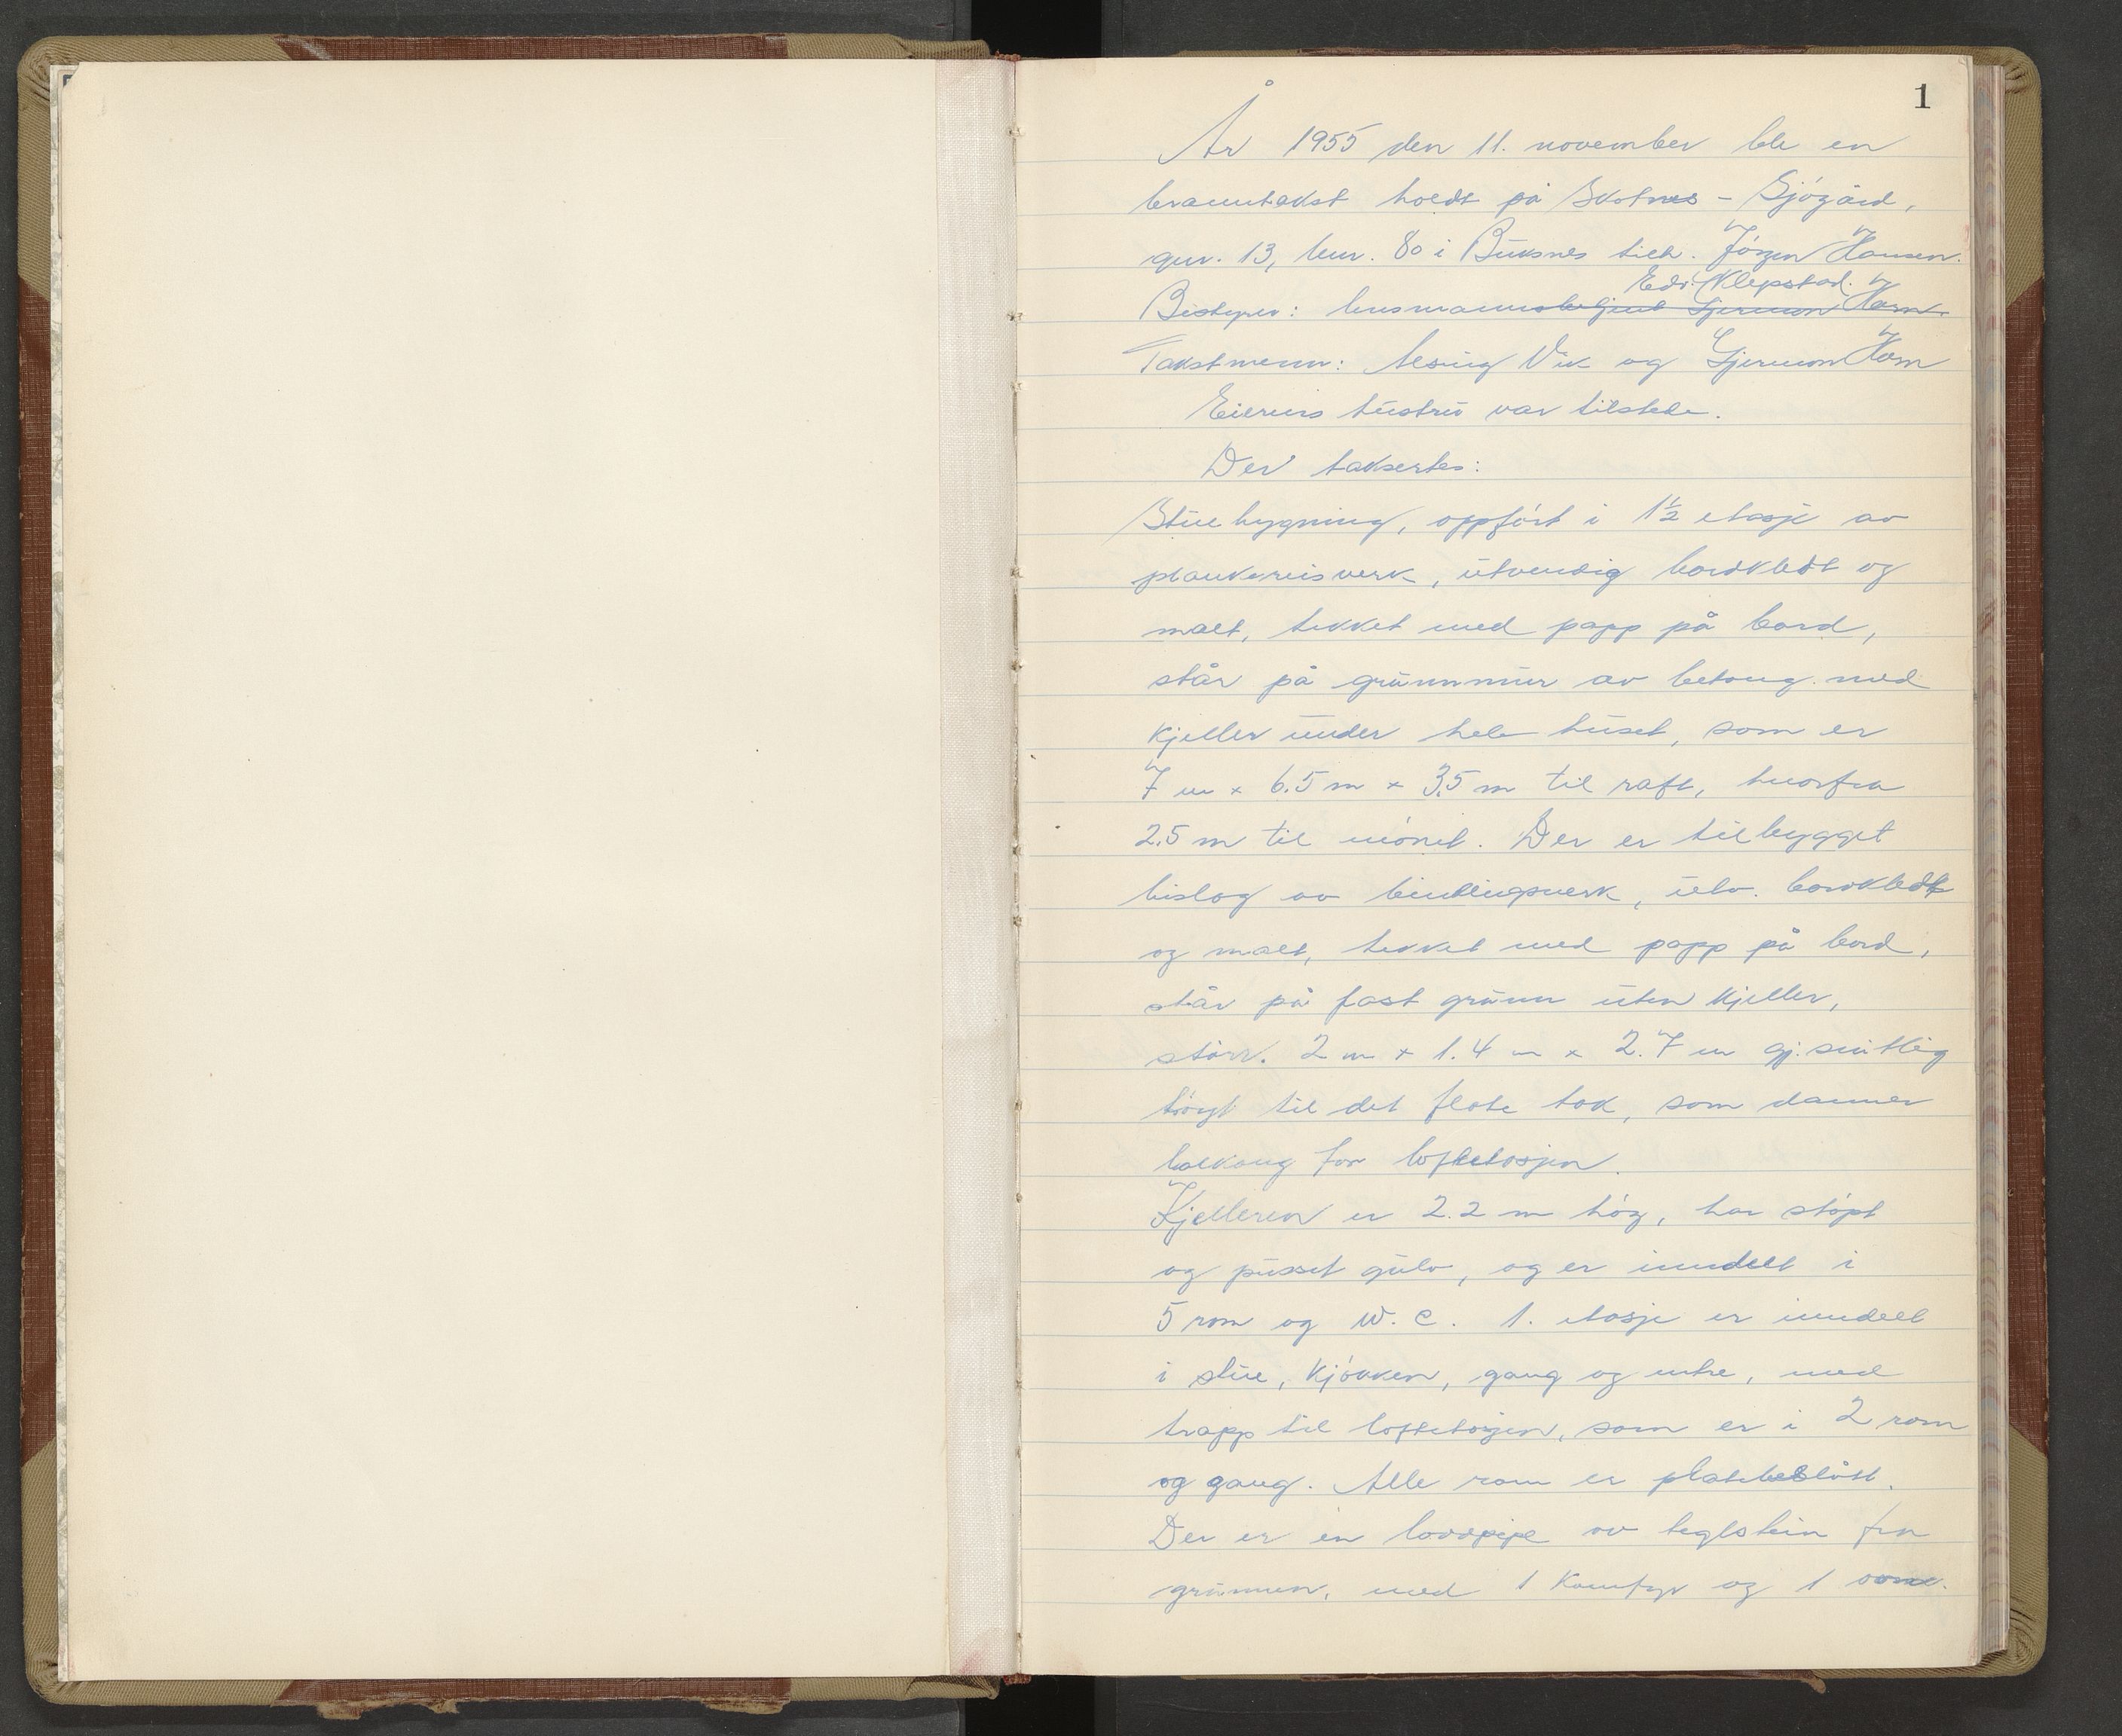 1
År 1955 den 11. november ble en
branntakst holdt på Skotnes - Sjögård,
gnr. 13, bnr. 80 i Buksnes tilh. Jörgen Hansen.
Edv. Klepstad.
Bestyrer: lensmannsbetjent Gjermon Horn
Takstmenn: Aesing Vik og Gjermon Horn
Eierens hustru var tilstede.
Der taksertes:
Stuebygning, oppfört i 1½ etasje av
plankereisverk, utvendig bordkledt og
malt, tekket med papp på bord,
står på grunnmur av betong med
kjeller under hele huset, som er
7 m x 6.5 m x 3.5 m til raft, hvorfra
2.5 m til mönet. Der er tilbygget
bislag av bindingsverk, utv. bordkledt
og malt, tekket med papp på bord,
står på fast grunn uten kjeller,
störr. 2 m x 1.4 m x 2.7 m gj.snitlig
höyt til det flate tak, som danner
balkong for loftetasjen.
Kjelleren er 2.2 m hög, har stöpt
og pusset gulv, og er inndelt i
5 rom og W.C. 1. etasje er inndelt
i stue, kjökken, gang og entre, med
trapp til loftetasjen, som er i 2 rom
og gang. Alle rom er platebeslått.
Der er en loddpipe av teglstein fra
grunnen, med 1 komfyr og 1 ovne.